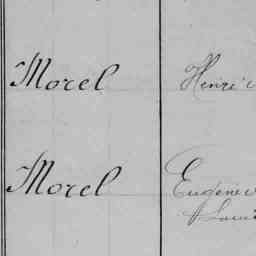 Morel Henri
Morel Eugène
Louis